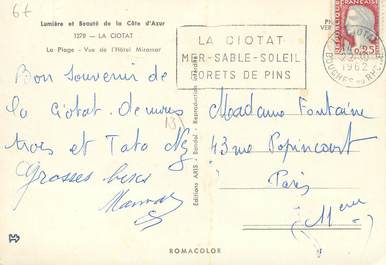 67
Lumière et Beauté de la Côte d'Azur
1279 - LA CIOTAT
La Plage - Vue de l'Hôtel Miramar
LA CIOTAT
MER-SABLE-SOLEIL
FORETS DE PINS
0,25
LA CIOTAT
1962
BOUCHES DU RHONE
Bon Souvenir de
la Ciotat. de nous
trois et Tata
Grosses bises
Maman
Editions ARIS - Bandol - Reproduction
Madame Fontaine
43 rue Popincourt
Paris
(11eme)
ROMACOLOR